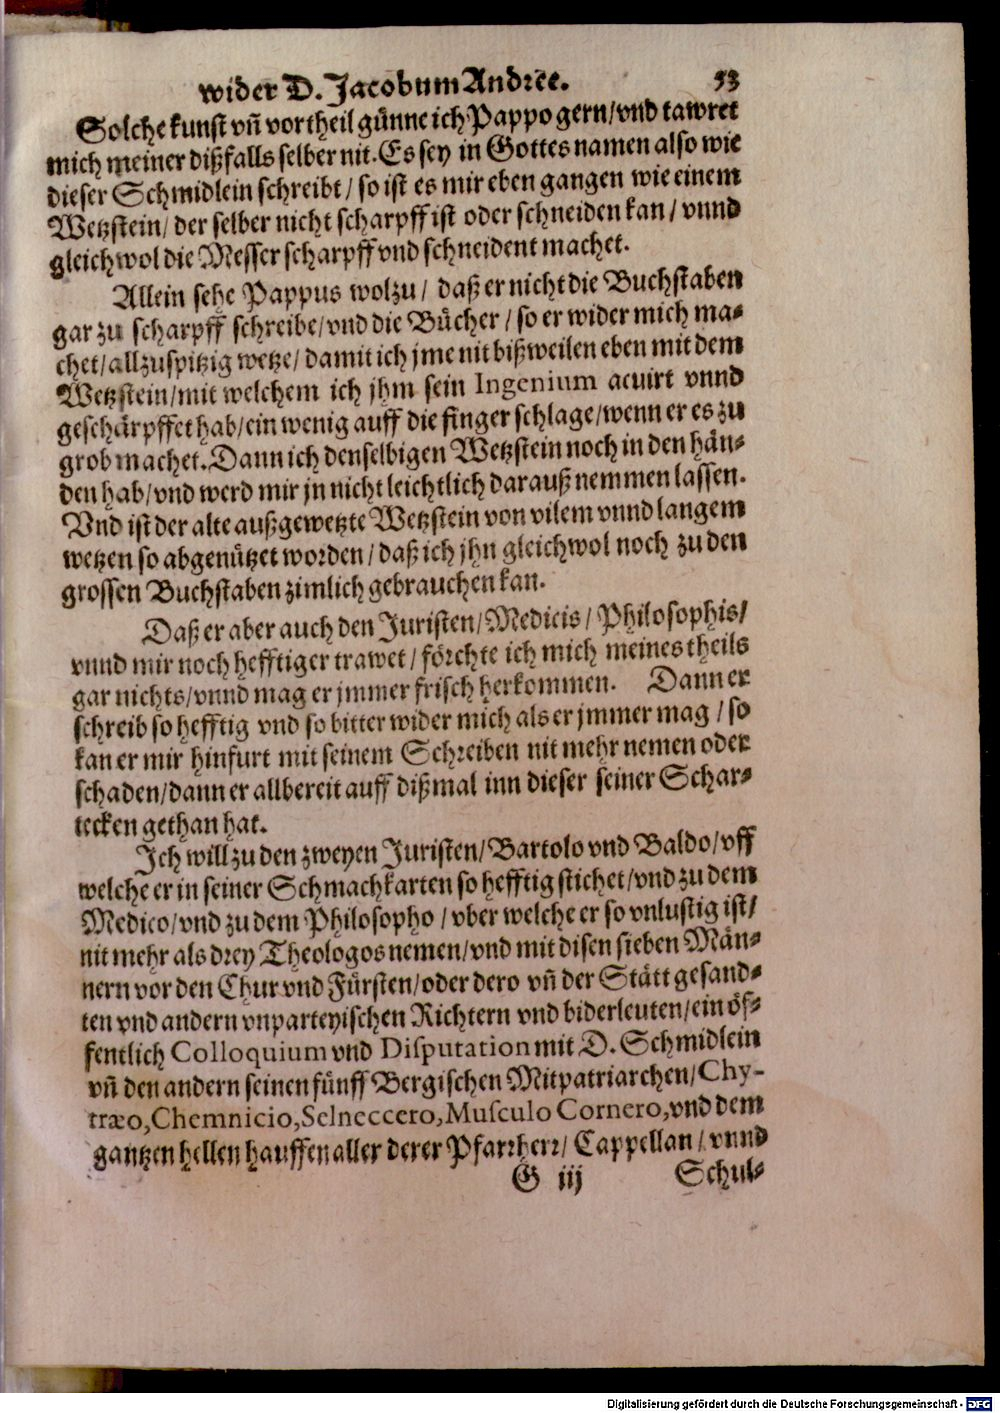 wider D. Jacobum Andree. 53
Solche kunst vñ vortheil günne ich Pappo gern/vnd tawret
mich meiner dißfalls selber nit. Es sey in Gottes namen also wie
dieser Schmidlein schreibt/ so ist es mir eben gangen wie einem
Wetzstein/ der selber nicht scharpff ist oder schneiden kan/ vnnd
gleichwol die Messer scharpff vnd schneident machet.
Allein sehe Pappus wol zu/ daß er nicht die Buchstaben
gar zu scharpff schreibe/vnd die Bücher/ so er wider mich ma-
chet/allzuspitzig wetze/ damit ich jme nit bißweilen eben mit dem
Wetzstein/mit welchem ich jhm sein Ingenium acuirt vnnd
geschärpffet hab/ein wenig auff die finger schlage/wenn er es zu
grob machet. Dann ich denselbigen Wetzstein noch in den hän-
den hab/vnd werd mir jn nicht leichtlich darauß nemmen lassen.
Vnd ist der alte außgewetzte Wetzstein von vilem vnnd langem
wetzen so abgenützet worden/ daß ich jhn gleichwol noch zu den
grossen Buchstaben zimlich gebrauchen kan.
Daß er aber auch den Juristen/Medicis/ Philosophis/
vnnd mir noch hefftiger trawet/ förchte ich mich meines theils
gar nichts/vnnd mag er jmmer frisch herkommen. Dann er
schreib so hefftig vnd so bitter wider mich als er jmmer mag/ so
kan er mir hinfurt mit seinem Schreiben nit mehr nemen oder
schaden/dann er allbereit auff dißmal inn dieser seiner Schar-
tecken gethan hat.
Ich will zu den zweyen Juristen/Bartolo vnd Baldo/vff
welche er in seiner Schmachkarten so hefftig stichet/vnd zu dem
Medico/vnd zu dem Philosopho/ vber welche er so vnlustig ist/
nit mehr als drey Theologos nemen/vnd mit disen sieben Män-
nern vor den Chur vnd Fürsten/oder dero vñ der Stätt gesand-
ten vnd andern vnparteyischen Richtern vnd biderleuten/ein öf-
fentlich Colloquium vnd Disputation mit D. Schmidlein
vñ den andern seinen fünff Bergischen Mitpatriarchen/Chy-
træo,Chemnicio,Selneccero,Musculo Cornero,vnd dem
gantzen hellen hauffen aller derer Pfarrherr/ Cappellan/ vnnd
G iij Schul-
Digitalisierung gefördert durch die Deutsche Forschungsgemeinschaft - DFG